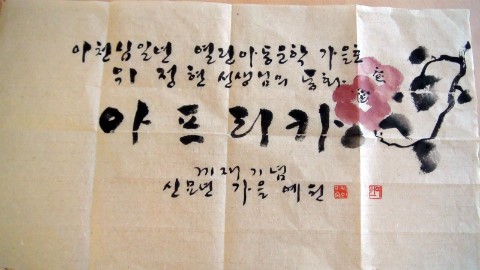 이천십일년 열린아동문학 가을호
위정현 선생님의 동화
아프리카
게재기념
신묘년 가을 예원